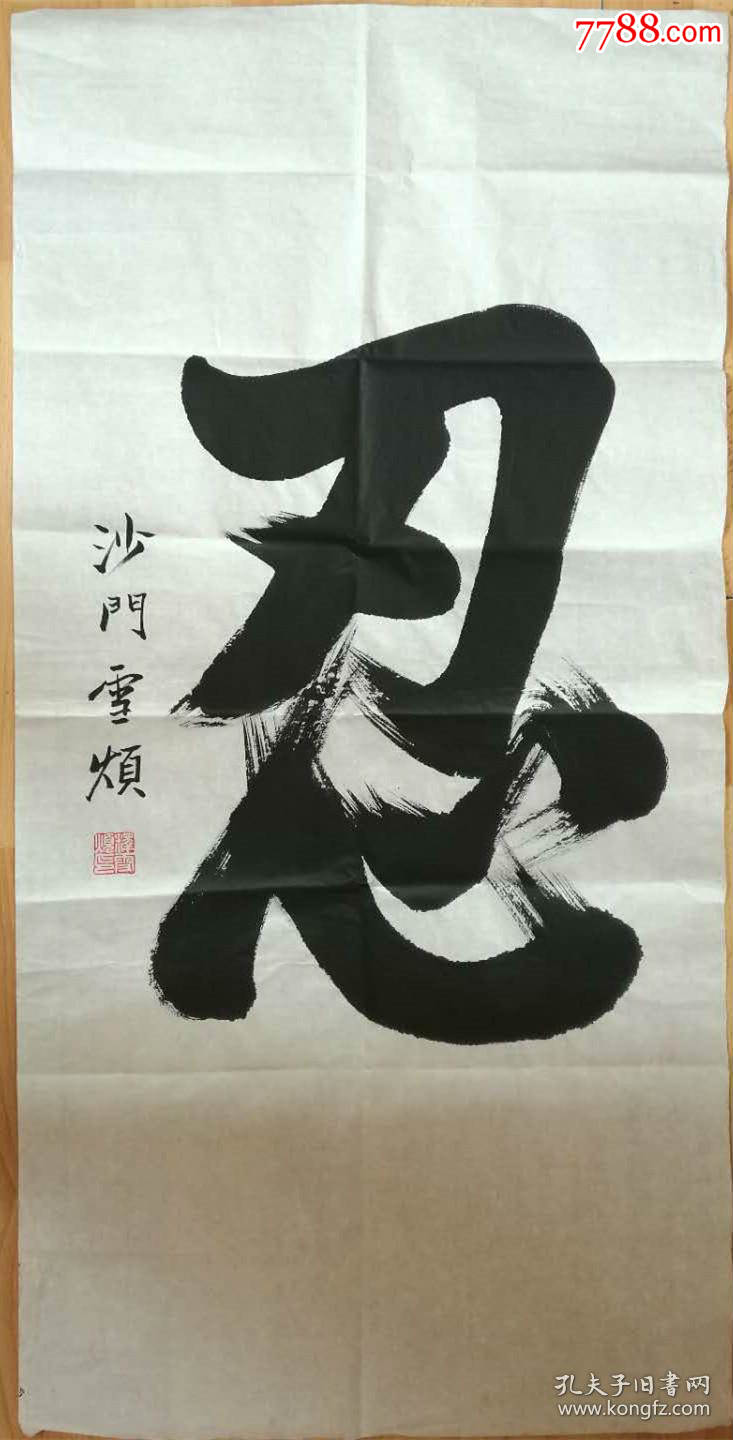 7788.com
忍
沙門雪煩
孔夫子旧书网
www.kongfz.com